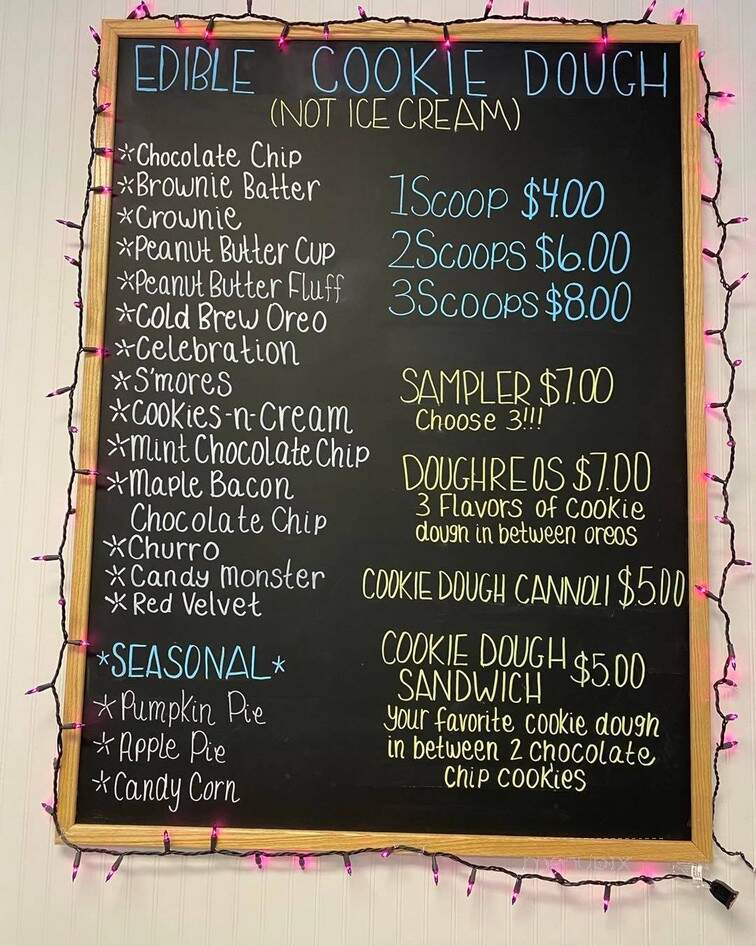 EDIBLE COOKIE DOUGH
(NOT ICE CREAM)
*Chocolate Chip
*Brownie Batter
*Crownie
*Peanut Butter Cup
*Peanut Butter Fluff
*Cold Brew Oreo
*Celebration
*S'mores
*Cookies-n-Cream
*Mint Chocolate Chip
*Maple Bacon
Chocolate Chip
*Churro
*Candy Monster
*Red Velvet
*SEASONAL*
*Pumpkin Pie
*Apple Pie
*Candy Corn
1 Scoop $4.00
2 Scoops $6.00
3 Scoops $8.00
SAMPLER $7.00
Choose 3!!!
DOUGHREOS $7.00
3 Flavors of cookie
dough in between oreos
COOKIE DOUGH CANNOLI $5.00
COOKIE DOUGH
SANDWICH $5.00
your favorite cookie dough
in between 2 chocolate
chip cookies